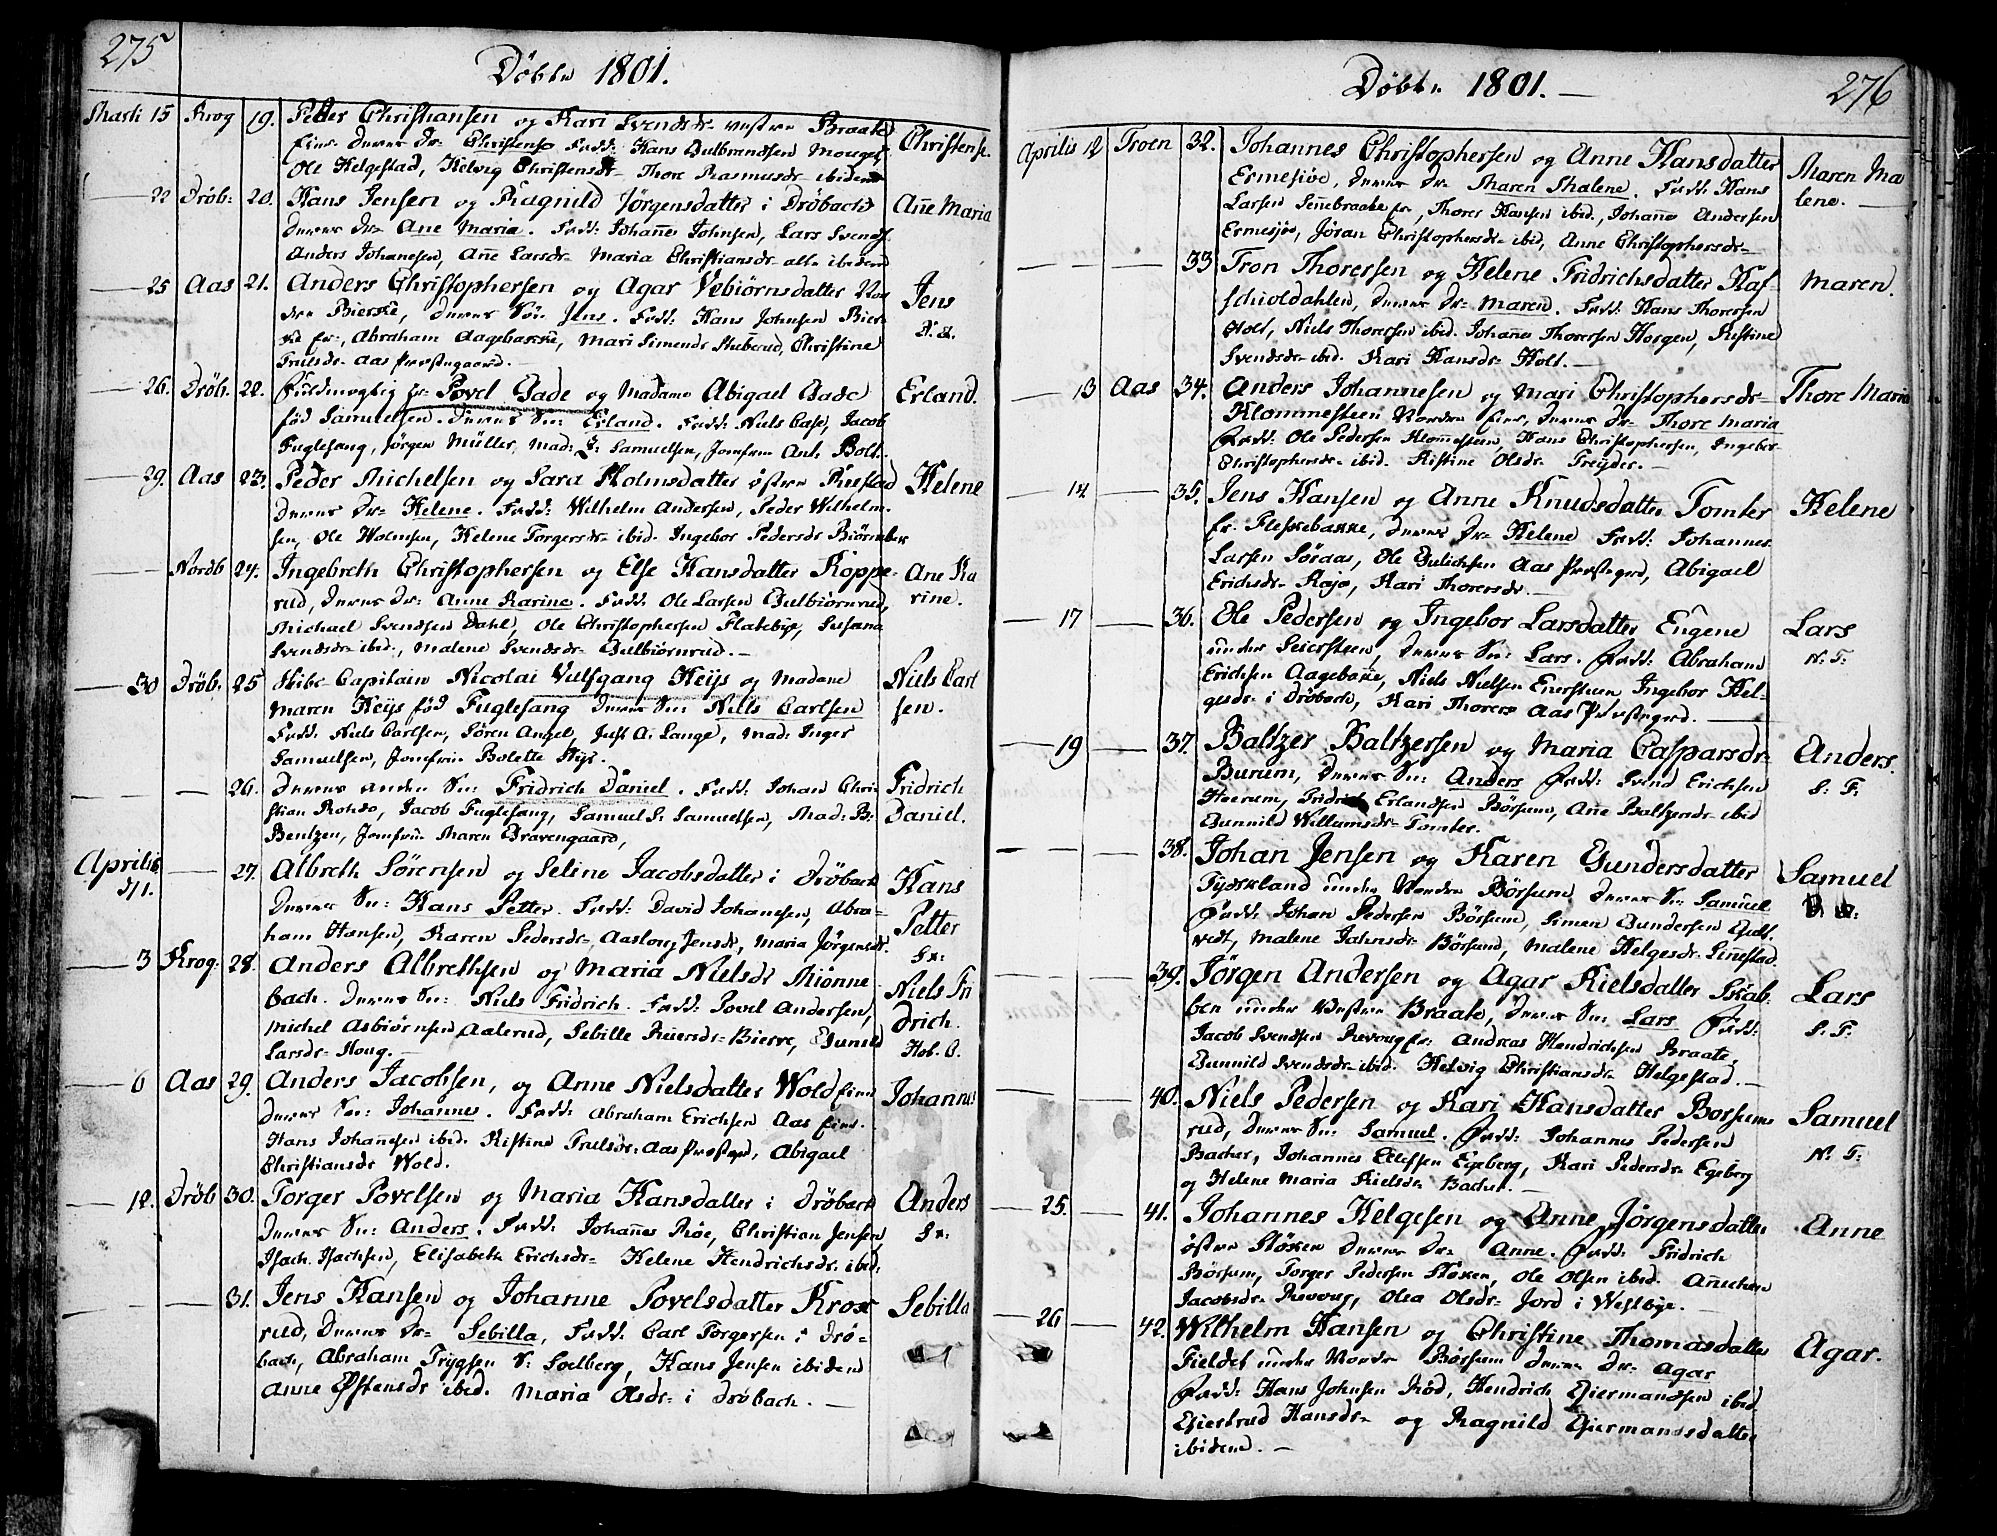 275
Döbte 1801.
Martii 15 Krog 19. Peder Christiansen og Kari Svendsdr vestre Braate
Eier deres Dr Christense Fadd: Hans Gulbrandsen
Ole Helgestad, Helvig Christensdr Thore Rasmusdr ibidem
Christense.
22 Dröb: 20. Hans Jensen og Ragnild Jörgensdatter i Dröbach
deres Dr Ane Maria. Fadd: Johannes Johnsen, Lars Svends.
Anders Johanesen, Anne Larsdr Maria Christiansdr alle ibidem
Anne Maria
25 Aas 21. Anders Christophersen og Agar Vebiörnsdatter Nor
dre Bierke, deres Sön Jens. Fadd: Hans Johnsen Bier
ke Eier, Abraham Aagebakke, Mari Simends Stuberud, Christine
Trulsdr Aas Præstegaard.
Jens
26. Dröb. 22. Fuldmegtig Hr Povel Gade og Madame Abigael Gade
föd Samuelsen. Deres Sn: Erland. Fadd: Niels Case, Jacob
Fuglesang, Jörgen Müller, Mad: Samuelsen, Jomfrue Ant. Bolt.
Erland.
29. Aas 23. Peder Michelsen og Sara Holmsdatter östre Rustad
deres Dr Helene. Fadd: Wilhelm Andersen, Peder Wilhelm
sen, Ole Holmsen, Helene Torgersdr ibid. Ingebor Pedersdr
Helene
Nordb 24. Ingebreth Christophersen og Else Hansdatter Koppe
rud, deres Dr: Anne Karine. Fadd: Ole Larsen Gulbiörnrud,
Michael Svendsen Dahl, Ole Christophersen Flateby, Susana
Svendsdr ibid., Malene Svendsdr Gulbiörnrud.
Ane Ka
rine.
30 Dröb. 25 Skibs Capitain Nicolai Vulfgang Heijs og Madame
Maren Heijs föd Fuglesang deres Sn: Niels Carlsen
Fadd: Niels Carlsen, Sören Angel, Just A. Lange, Mad: Inger
Samuelsen, Jomfrue Bolette Hijs.
Niels Carl
sen.
26. Deres anden Sn: Fridrich Daniel. Fadd: Johan Chri
stian Rohde, Jacob Fuglesang, Samuel S: Samuelsen, Mad: B:
Bentzen, Jomfrue Maren Gravengaard,
Fridrich
Daniel.
Aprilis
1. 27. Albreth Sörensen og Seline Jacobsdatter i Dröbach
Deres Sn: Hans Petter. Fadd: David Johansen, Abra
ham Hansen, Karen Pedersdr, Aaslong Jensdr, Maria Jörgensdr
Hans
Petter
3 Krog. 28. Anders Albrethsen og Maria Nielsdr Miönne
bach. Deres Sn: Niels Fridrich. Fadd: Povel Andersen,
Michel Asbiörnsen Aalerud, Sebille Biercke, Gunild
Larsdr Houg.
Niels Fri
drich.
6 Aas 29. Anders Jacobsen, og Anne Nielsdatter Wold Eier
deres Sn: Johannes. Fadd: Abraham Erichsen Aas Eier
Hans Johannesen ibid. Kistine Trulsdr Aas Præstegd, Abigael
Christiansdr Wold.
Johannes
12. Dröb 30. Torger Povelsen og Maria Hansdatter i Dröbach
deres Sn: Anders. Fadd: Johannes Röe, Christian Jensen
Isach Isachsen, Elisabeth Erichsdr Helene Hendrichsdr ibid:
Anders
31. Jens Hansen og Johanne Povelsdatter Krox
rud, Deres Dr Sebilla, Fadd: Carl Torgersen i Drö
bach, Abraham Trygsen Solberg, Hans Jensen ibidem
Anne Östensdr ibid. Maria Olsdr i Dröbach.
Sebilla
Döbte 1801. 276
Aprilis 12 Troen 32. Johannes Christophersen og Anne Hansdatter
Ermesiöe, deres Dr Maren Malene. Fadd: Hans
Larsen Sennebraate Eier, Thorer Hansen ibid., Johannes Andersen
Ermesjöe, Jöran Christophersdr ibid, Anne Christophersdr
Maren Ma
lene.
33 Tron Thorersen og Helene Fridrichsdatter Haf
schioldahlen, Deres Dr Maren. Fadd: Hans Thorersen
Holt, Niels Thoresen ibid. Johannes Thorersen Horgen, Kistine
Svendsdr ibid. Kari Hansdr Holt.
Maren.
13 Aas 34. Anders Johannesen og Mari Christophersdr
Klommesteen Nordre Eier, deres Dr Thore Maria
Fadd: Ole Pedersen Klommesteen, Hans Christophersen, Ingebor
Christophersdr ibid. Kistine Olsdr Treyder.
Thore Maria
14 35. Jens Hansen og Anne Knudsdatter Tomter
Eier Fleskebakke, deres Dr Helene Fadd: Johannes
Larsen Söraas, Ole Gulichsen Aas Præstegrd, Abigael
Erichsdr Kajæ, Kari Thorersdr.
Helene
17 36. Ole Pedersen og Ingebor Larsdatter Engene
under Seiersteen, deres Sn: Lars. Fadd: Abraham
Erichsen Aagebakke, Niels Nielsen Enersteen Ingebor Hel
gesdr i Dröbach, Kari Thorers Aas Præstegrd.
Lars
N. F:
19 37. Baltzer Baltzersen og Maria Caspersdr
Burum, deres Sn: Anders Fadd: Svend Erichsen
Hoerum, Fridrich Erlandsen Börsum, Anne Baltzersdr ibid
Gunnild Willumsdr Tomter.
Anders.
S. F:
38. Johan Jensen og Karen Gundersdatter
Tydskland under Nordre Börsum deres Sn: Samuel
Fadd: Johan Pedersen Börsum, Simen Gundersen
vedt, Malene Johnsdr Börsum, Malene Helgesdr Linnestad.
Samuel
39. Jörgen Andersen og Agar Kielsdatter Skab
ben under Westre Braate, deres Sn: Lars Fadd:
Jacob Svendsen Revoug Eier: Andreas Hendrichsen Braate,
Gunnild Svendsdr ibid. Helvig Christiansdr Helgestad.
Lars
S. F:
40. Niels Pedersen og Kari Hansdatter Borsums
rud, deres Sn: Samuel. Fadd: Johannes Pedersen
Bacher, Johannes Ellefsen Egeberg, Kari Pedersdr Egeberg
og Helene Maria Kielsdr Bacher.
Samuel
N. F:
25. 41. Johannes Helgesen og Anne Jörgensdatter
östre Flöxen deres Dr Anne. Fadd: Fridrich
Börsum, Torger Pedersen Flöxen, Ole Olsen ibid. Annichen
Jacobsdr Revoug, Olea Olsdr Jord i Westbye.
Anne
26 42. Wilhelm Hansen og Christine Thomasdatter
Fieldet under Nordre Börsum deres Dr Agar
Fadd: Hans Johnsen Röd, Hendrich Giermandsen ibid
Giertrud Hansdr og Ragnild Giermandsdatter
ibidem.
Agar.